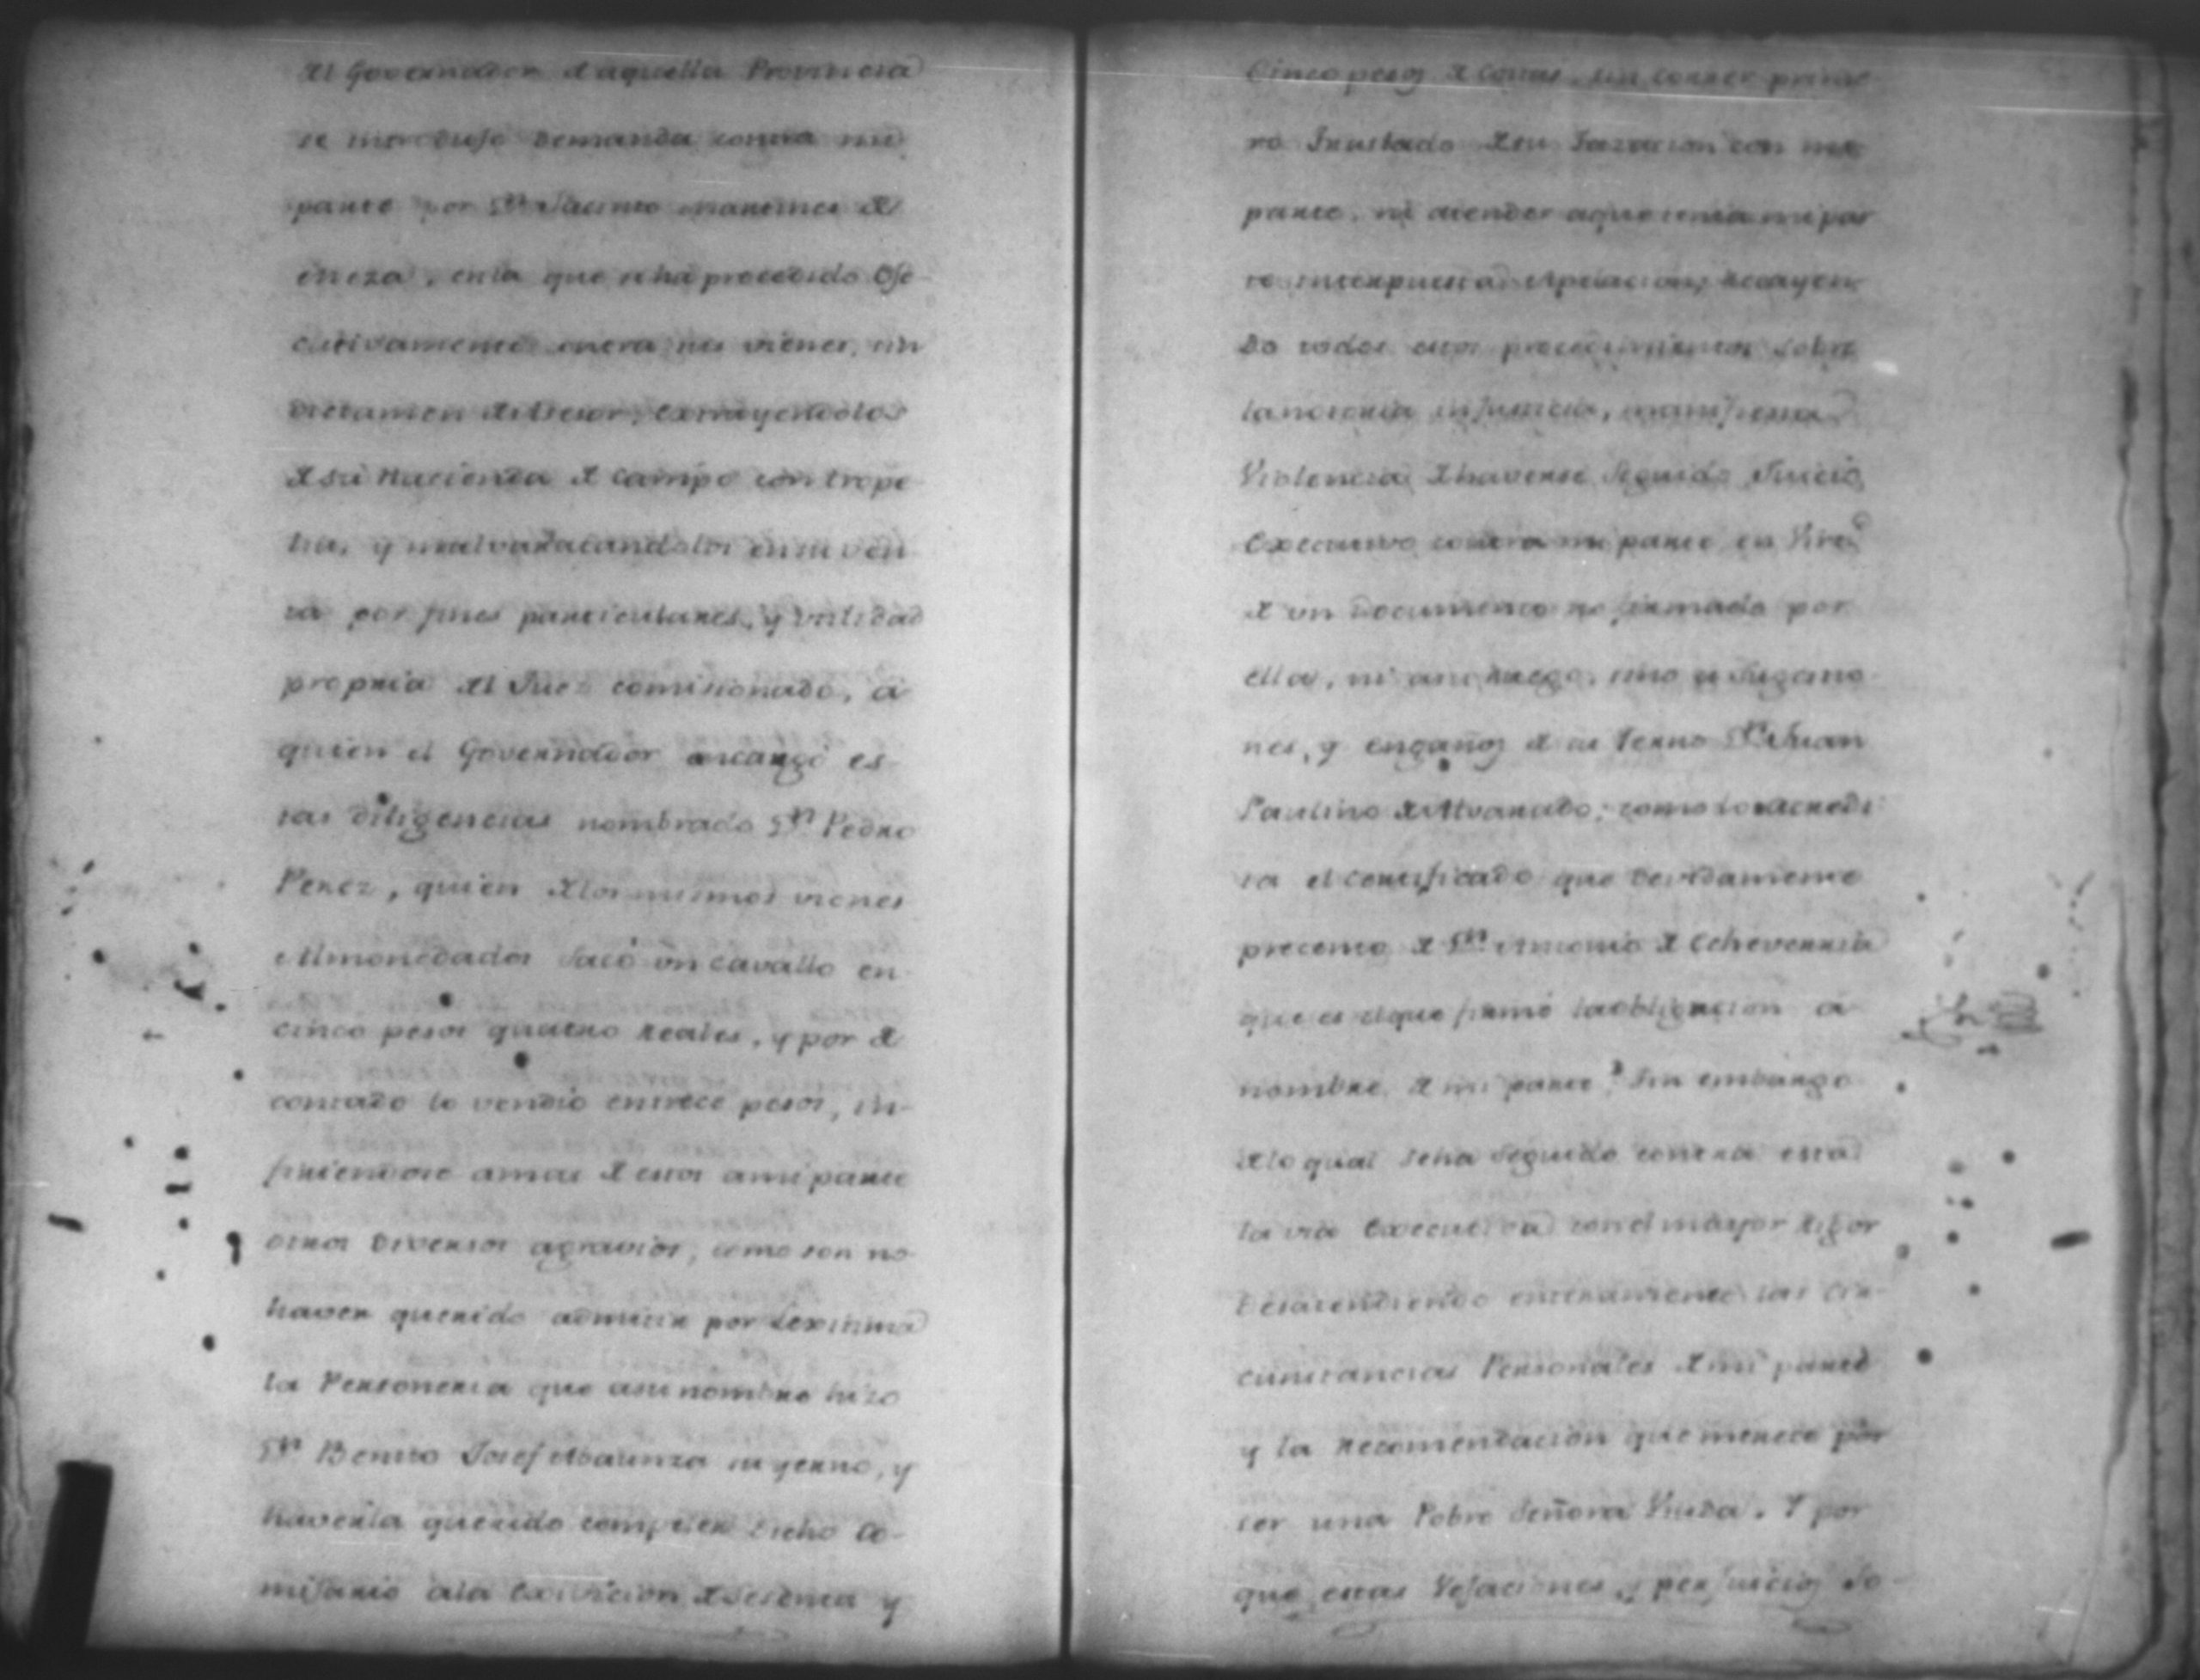 del Governador de aquella Provincia
se introdujo Demanda contra mi
parte por Dn Jacinto Martinez de
eneza, en la que se ha procedido Ege-
cutivamente contra sus vienes, sin
dictamen de Asesor, extrayendolos
de su Hacienda de Campo con trope-
lia, y malvaratandolos en su ven-
ta por fines particulares, y utilidad
propria del Juez comisionado, a
quien el Governador encargó es-
tas diligencias nombrado Dn Pedro
Perez, quien de los mismos vienes
Almonedados Sacó un cavallo en
cinco pesos quatro Reales, y por de
contado lo vendió en trece pesos, in-
firiendose a mas de estos a mi parte
otros Diversos agravios, como son no
haver querido admitir por Lexitima
la Personeria que a su nombre hizo
Dn Benito Josef Abaunza su yerno, y
haverla querido compeler dicho Co-
misario a la Exivicion de sesenta y
Cinco pesos de Costas, sin correr prime-
ro Traslado de su Tazacion con mi
parte, ni atender a que tenia mi par
te interpuesta Apelacion, Recayen
do todos estos procedimientos sobre
la notoria injusticia, manifiesta
Violencia de haverse Seguido Juicio
Executivo contra mi parte en Virtd
de un Documento no firmado por
ella, ni a su Ruego, sino a Sugestio-
nes, y engaños de su Yerno Dn Juan
Paulino de Alvarado, como lo acredi-
ta el Certificado que devidamente
presento de Dn Antonio de Echeverria
que es el que firmó la obligacion a
nombre de mi parte. Sin embargo
de lo qual se ha Seguido contra esta
la via Executiva con el mayor Rigor
Desatendiendo enteramente las Cir-
cunstancias Personales de mi parte
y la Recomendacion que merece por
ser una Pobre Señora Viuda. Y por
que estas Vejaciones, y perjuicios so-